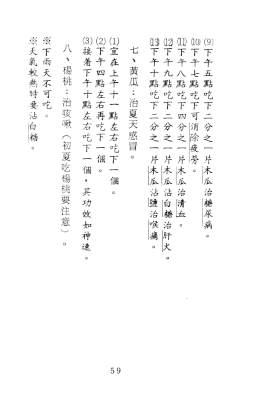 (9)下午五點吃下二分之一片木瓜治糖尿病。
(10)下午七點吃下可消除疲勞。
(11)下午八點吃下四分之一片木瓜治清血。
(12)下午九點吃下二分之一片木瓜沾白糖治肝火。
(13)下午十點吃下二分之一片木瓜沾鹽治喉痛。
七、黃瓜：治夏天感冒。
(1)宜在上午十一點左右吃下一個。
(2)下午四點左右再吃下一個。
(3)接著下午十點左右吃下一個，其功效如神速。
八、楊桃：治咳嗽（初夏吃楊桃要注意）。
※下雨天不可吃。
※天氣較熱特要沾白糖。
59